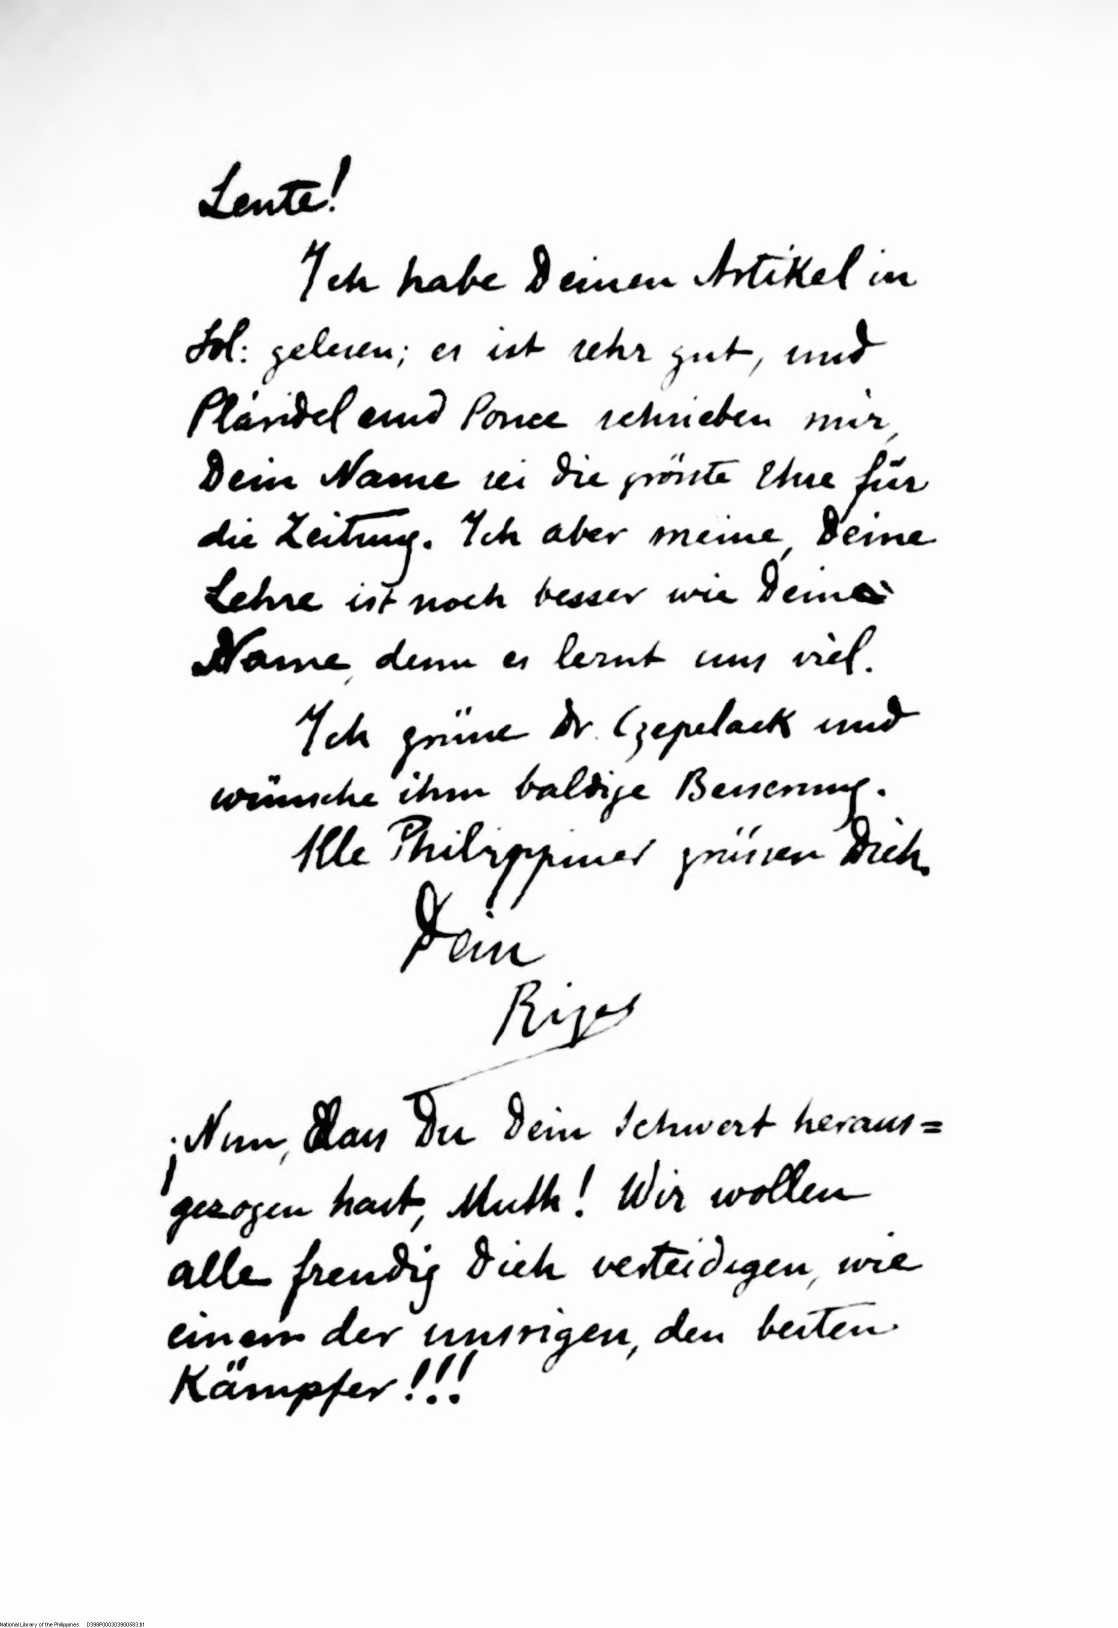 Leute!
Ich habe Deinen Artikel in
Sol: gelesen; es ist sehr gut, und
Pláridel und Ponce schrieben mir,
Dein Name sei die grösste Ehre für
die Zeitung. Ich aber meine, Deine
Lehre ist noch besser wie Dein
Name, denn es lernt uns viel.
Ich grüsse Dr. Czepelack und
wünsche ihm baldige Besserung.
Alle Philippiner grüssen Dich.
Dein
Rizal
¡Nun, dass Du Dein Schwert heraus=
gezogen hast, Muth! Wir wollen
alle freudig Dich verteidigen, wie
einem der unsrigen, den besten
Kämpfer!!!
National Library of the Philippines